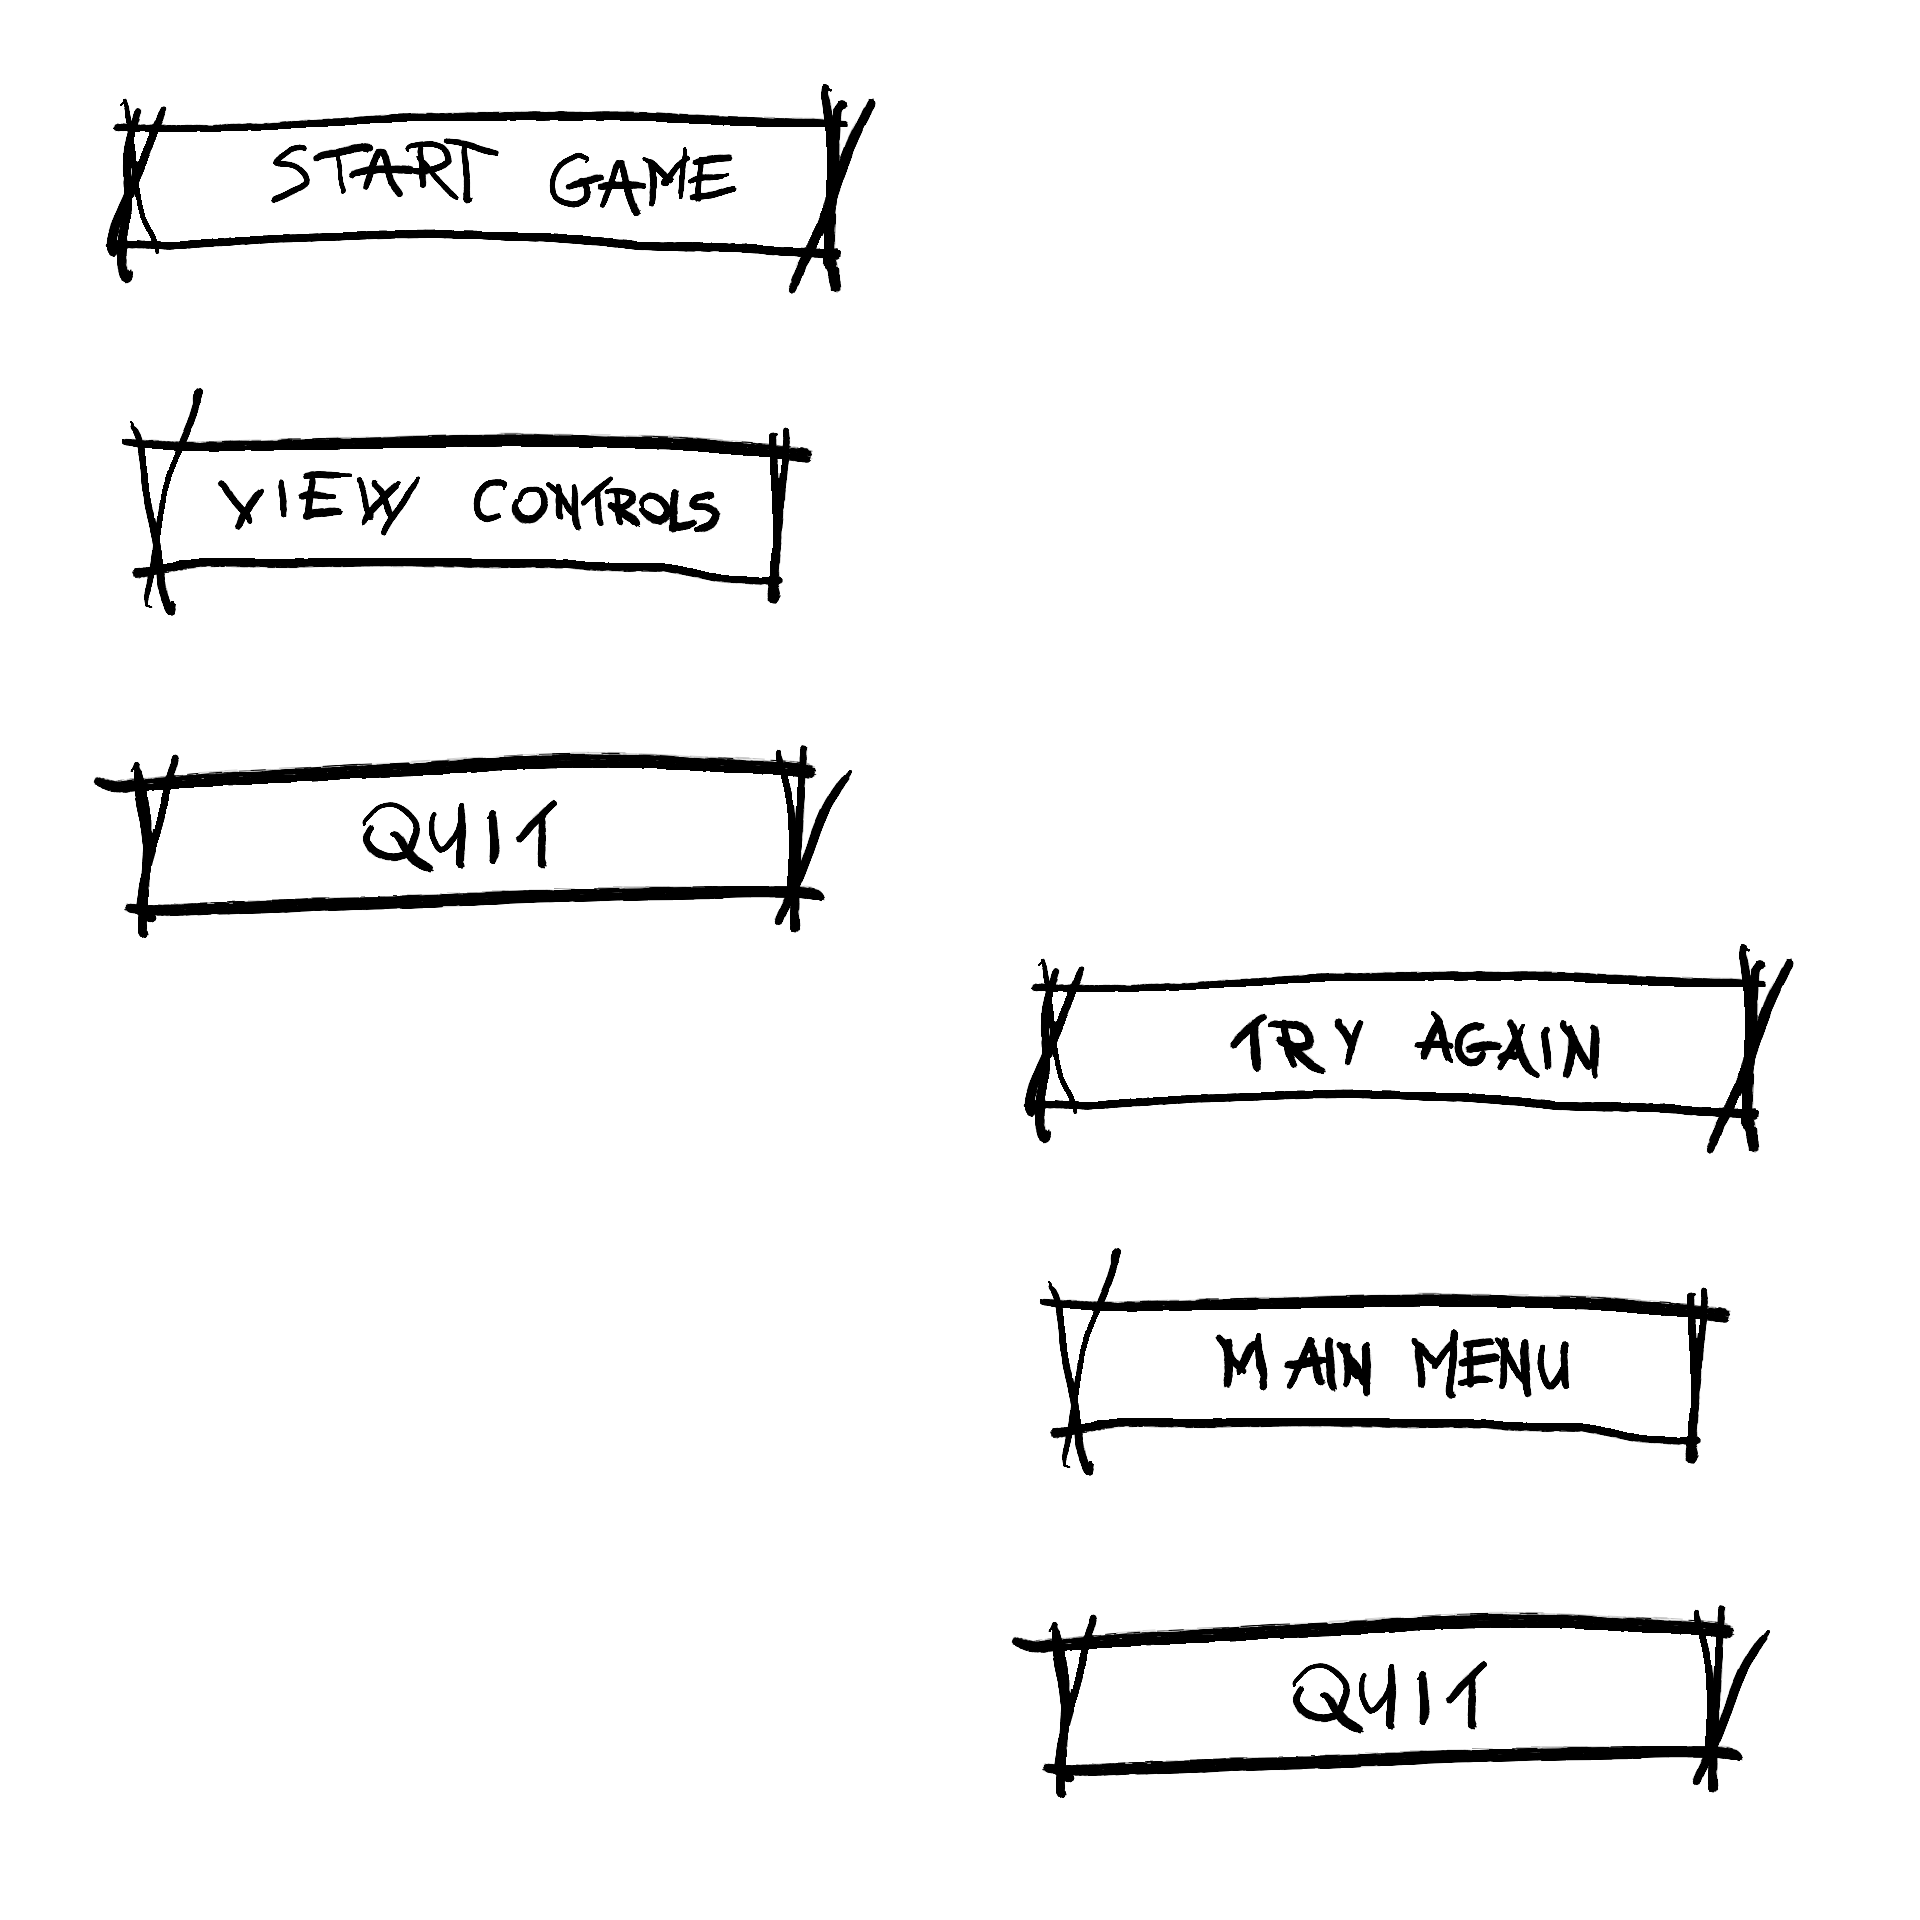 START GAME
VIEW CONTROLS
QUIT
TRY AGAIN
MAIN MENU
QUIT